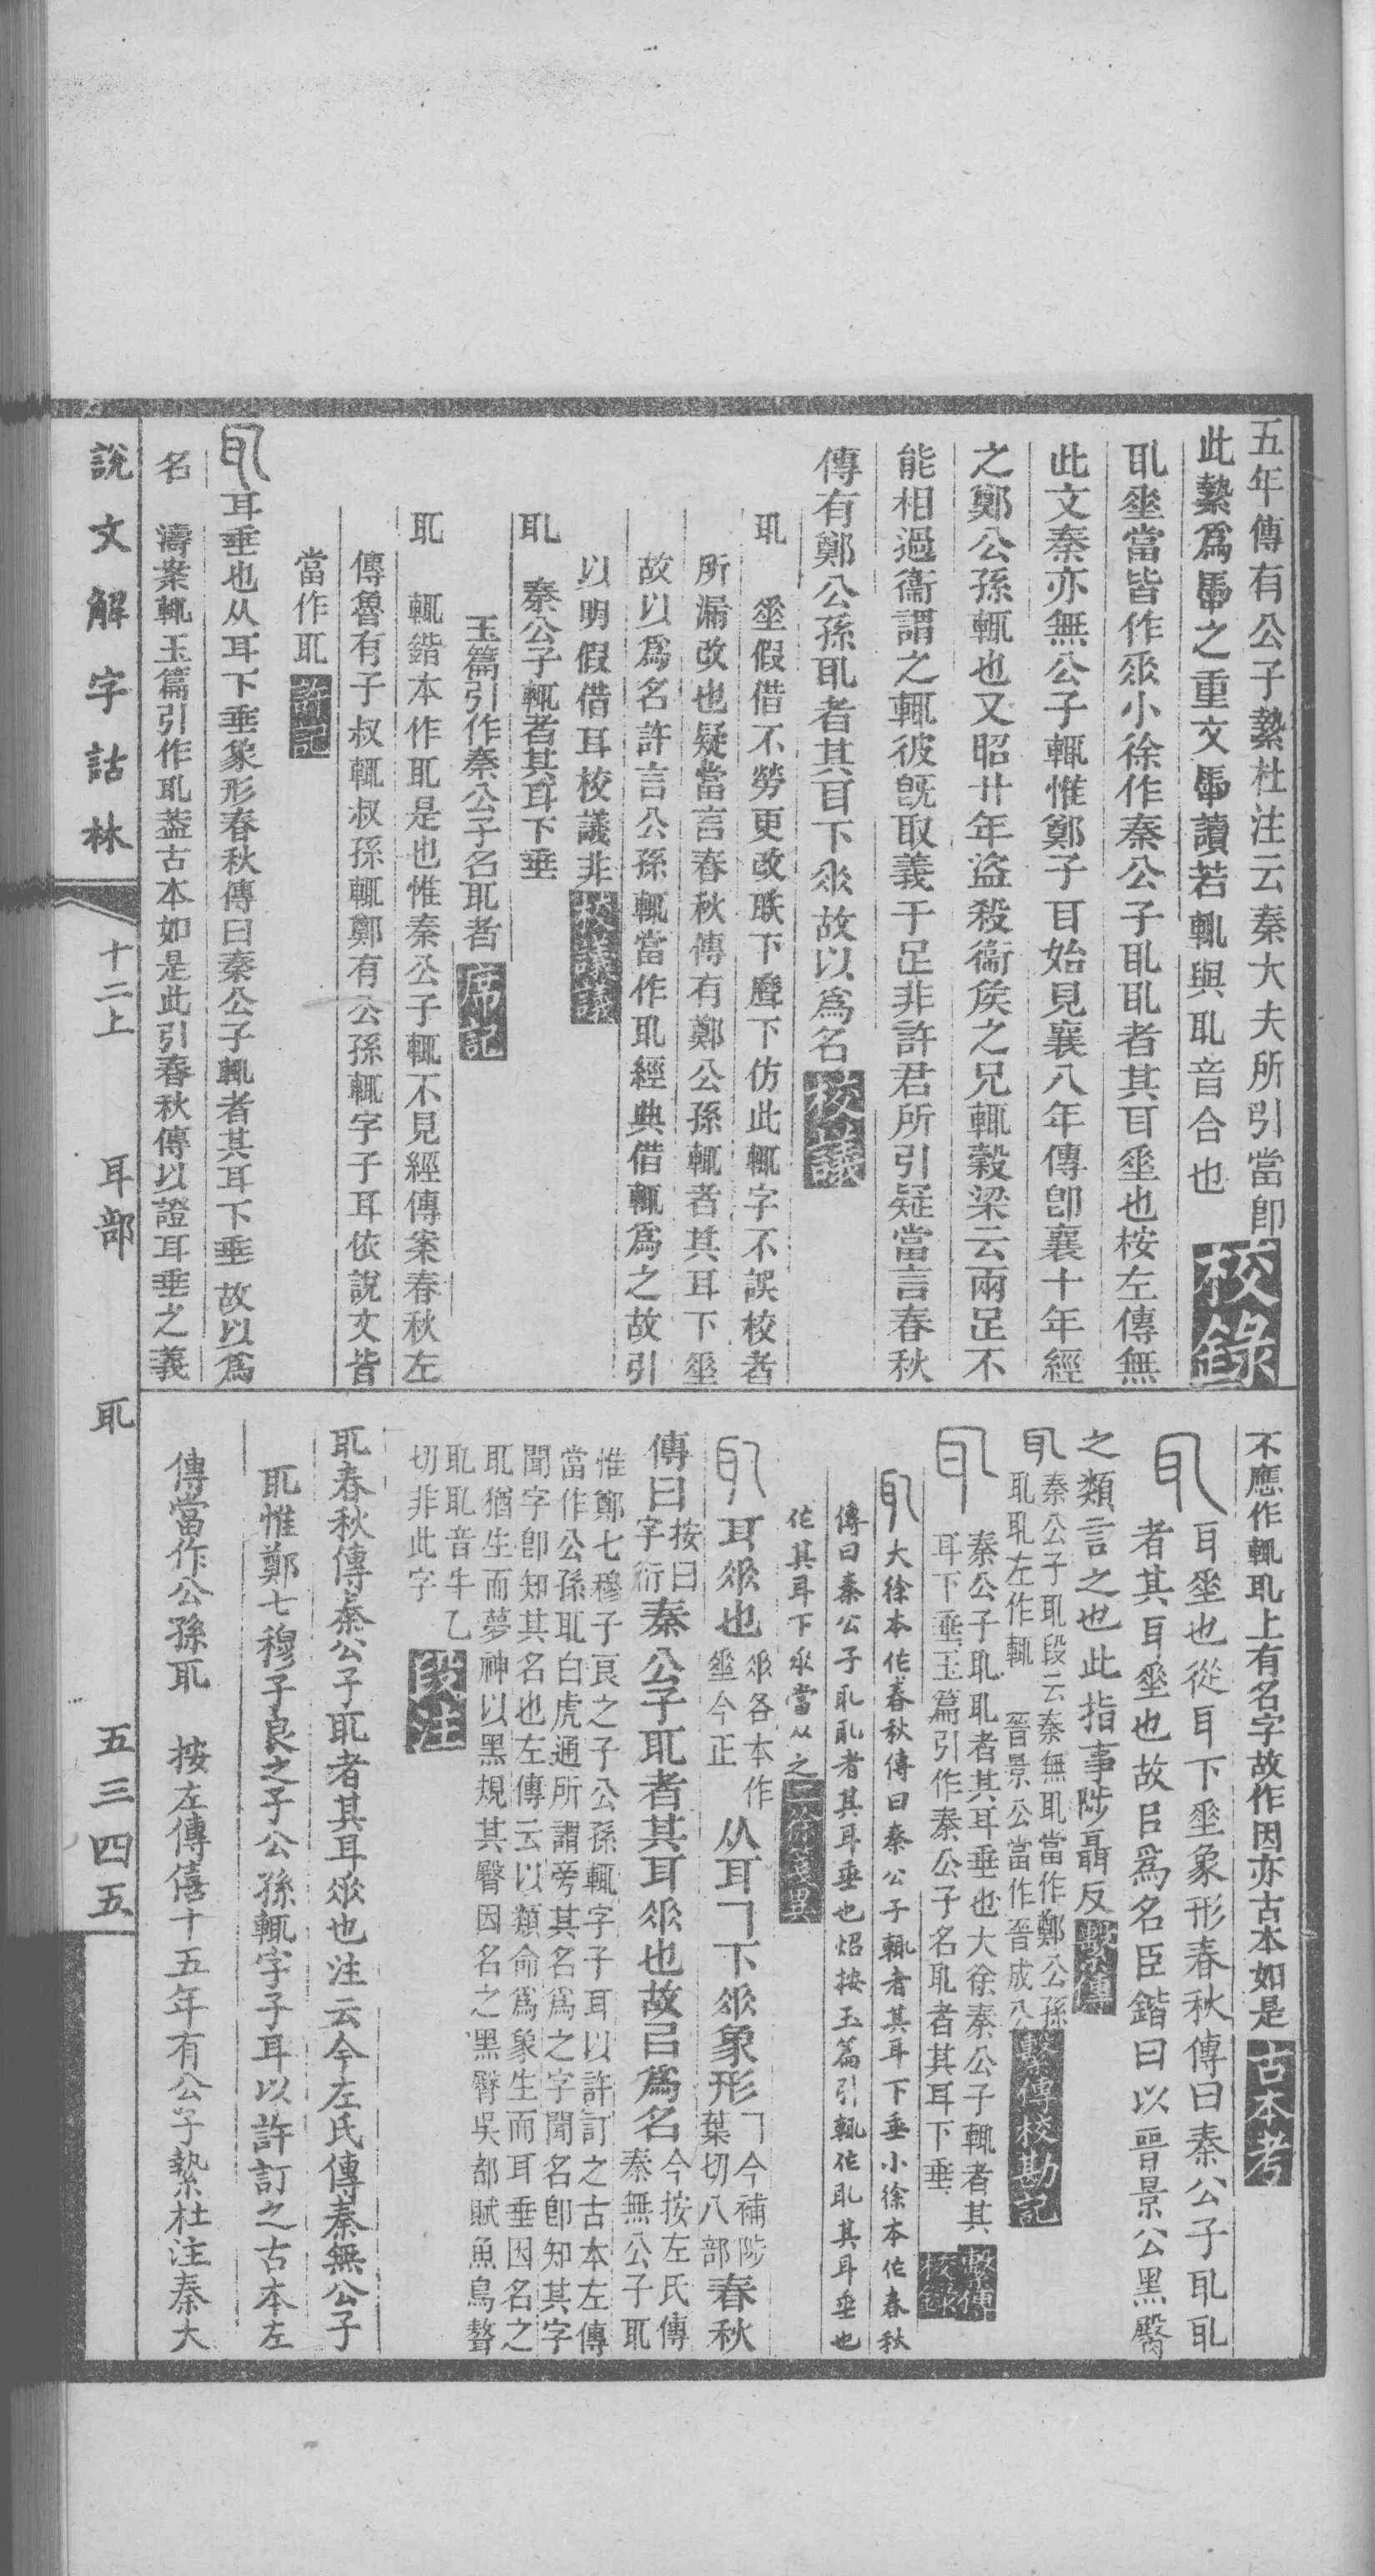 五年傳有公子縶杜注云秦大夫所引當卽
此縶爲馽之重文馽讀若輒與耴音合也校錄
耴坙當皆作𠂹小徐作秦公子耴耴者其耳坙也桉左傳無
此文秦亦無公子輒惟鄭子耳始見襄八年傳卽襄十年經
之鄭公孫輒也又昭廿年盜殺衞矦之兄輒穀梁云兩足不
能相過衞謂之輒彼旣取義于足非許君所引疑當言春秋
傳有鄭公孫耴者其耳下𠂹故以爲名校議
耴 坙假借不勞更改聅下𦗕下仿此輒字不誤校者
所漏改也疑當言春秋傳有鄭公孫輒者其耳下坙
故以爲名許言公孫輒當作耴經典借輒爲之故引
以明假借耳校議非校議議
耴 秦公子輒者其耳下垂
玉篇引作秦公子名耴者席記
耴 輒鍇本作耴是也惟秦公子輒不見經傳案春秋左
傳魯有子叔輒叔孫輒鄭有公孫輒字子耳依說文皆
當作耴許記
耴耳垂也从耳下垂象形春秋傳曰秦公子輒者其耳下垂故以爲
名 濤案輒玉篇引作耴葢古本如是此引春秋傳以證耳垂之義
說文解字詁林 十二上 耳部 耴 五三四五
不應作輒耴上有名字故作因亦古本如是古本考
耴耳坙也從耳下坙象形春秋傳曰秦公子耴耴
者其耳坙也故㠯爲名臣鍇曰以晉景公黑臀
之類言之也此指事陟聶反繫傳
耴秦公子耴段云秦無耴當作鄭公孫
耴耴左作輒 晉景公當作晉成公繫傳校勘記
耴秦公子耴耴者其耳垂也大徐秦公子輒者其
耳下垂玉篇引作秦公子名耴者其耳下垂繫傳校錄
耴大徐本作春秋傳曰秦公子輒者其耳下垂小徐本作春秋
傳曰秦公子耴耴者其耳垂也炤按玉篇引輒作耴其耳垂也
作其耳下𠂹當从之二徐箋異
耴耳𠂹也𠂹各本作坙今正从耳㇕下𠂹象形㇕今補陟葉切八部春秋
傳曰按曰字衍秦公子耴者其耳𠂹也故㠯爲名今按左氏傳秦無公子耴
惟鄭七穆子良之子公孫輒字子耳以許訂之古本左傳
當作公孫耴白虎通所謂旁其名爲之字聞名卽知其字
聞字卽知其名也左傳云以類命爲象生而耳垂因名之
耴猶生而夢神以黑規其臀因名之黑臀吳都賦魚鳥聱
耴耴音牛乙
切非此字段注
耴春秋傳秦公子耴者其耳𠂹也注云今左氏傳秦無公子
耴惟鄭七穆子良之子公孫輒字子耳以許訂之古本左
傳當作公孫耴 按左傳僖十五年有公子縶杜注秦大